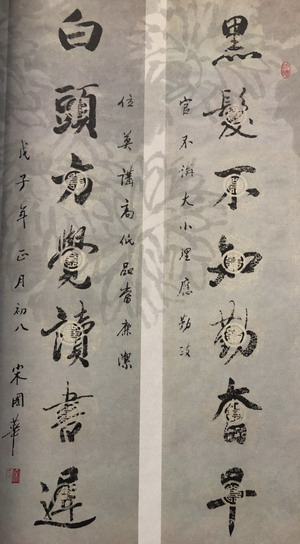 黑髮不知勤奮早
官不論大小理應勤政
位莫講高低品當廉潔
白頭方覺讀書遲
戊子年正月初八
宋國華